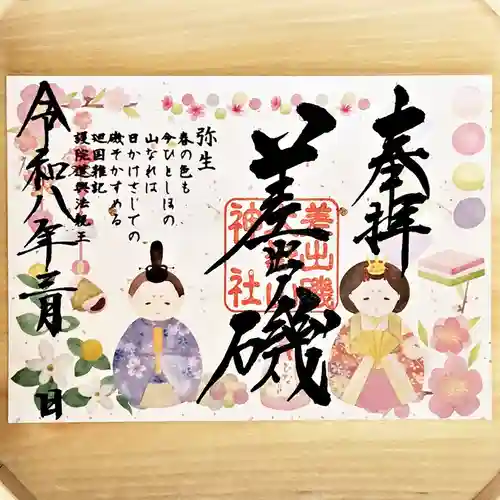 奉拝
差出磯
差出磯
神社
弥生
春の色も
今ひとしほの
山なれは
日かけさしての
磯そかすめる
廻国雑記
護院道興法親王
令和八年三月 日